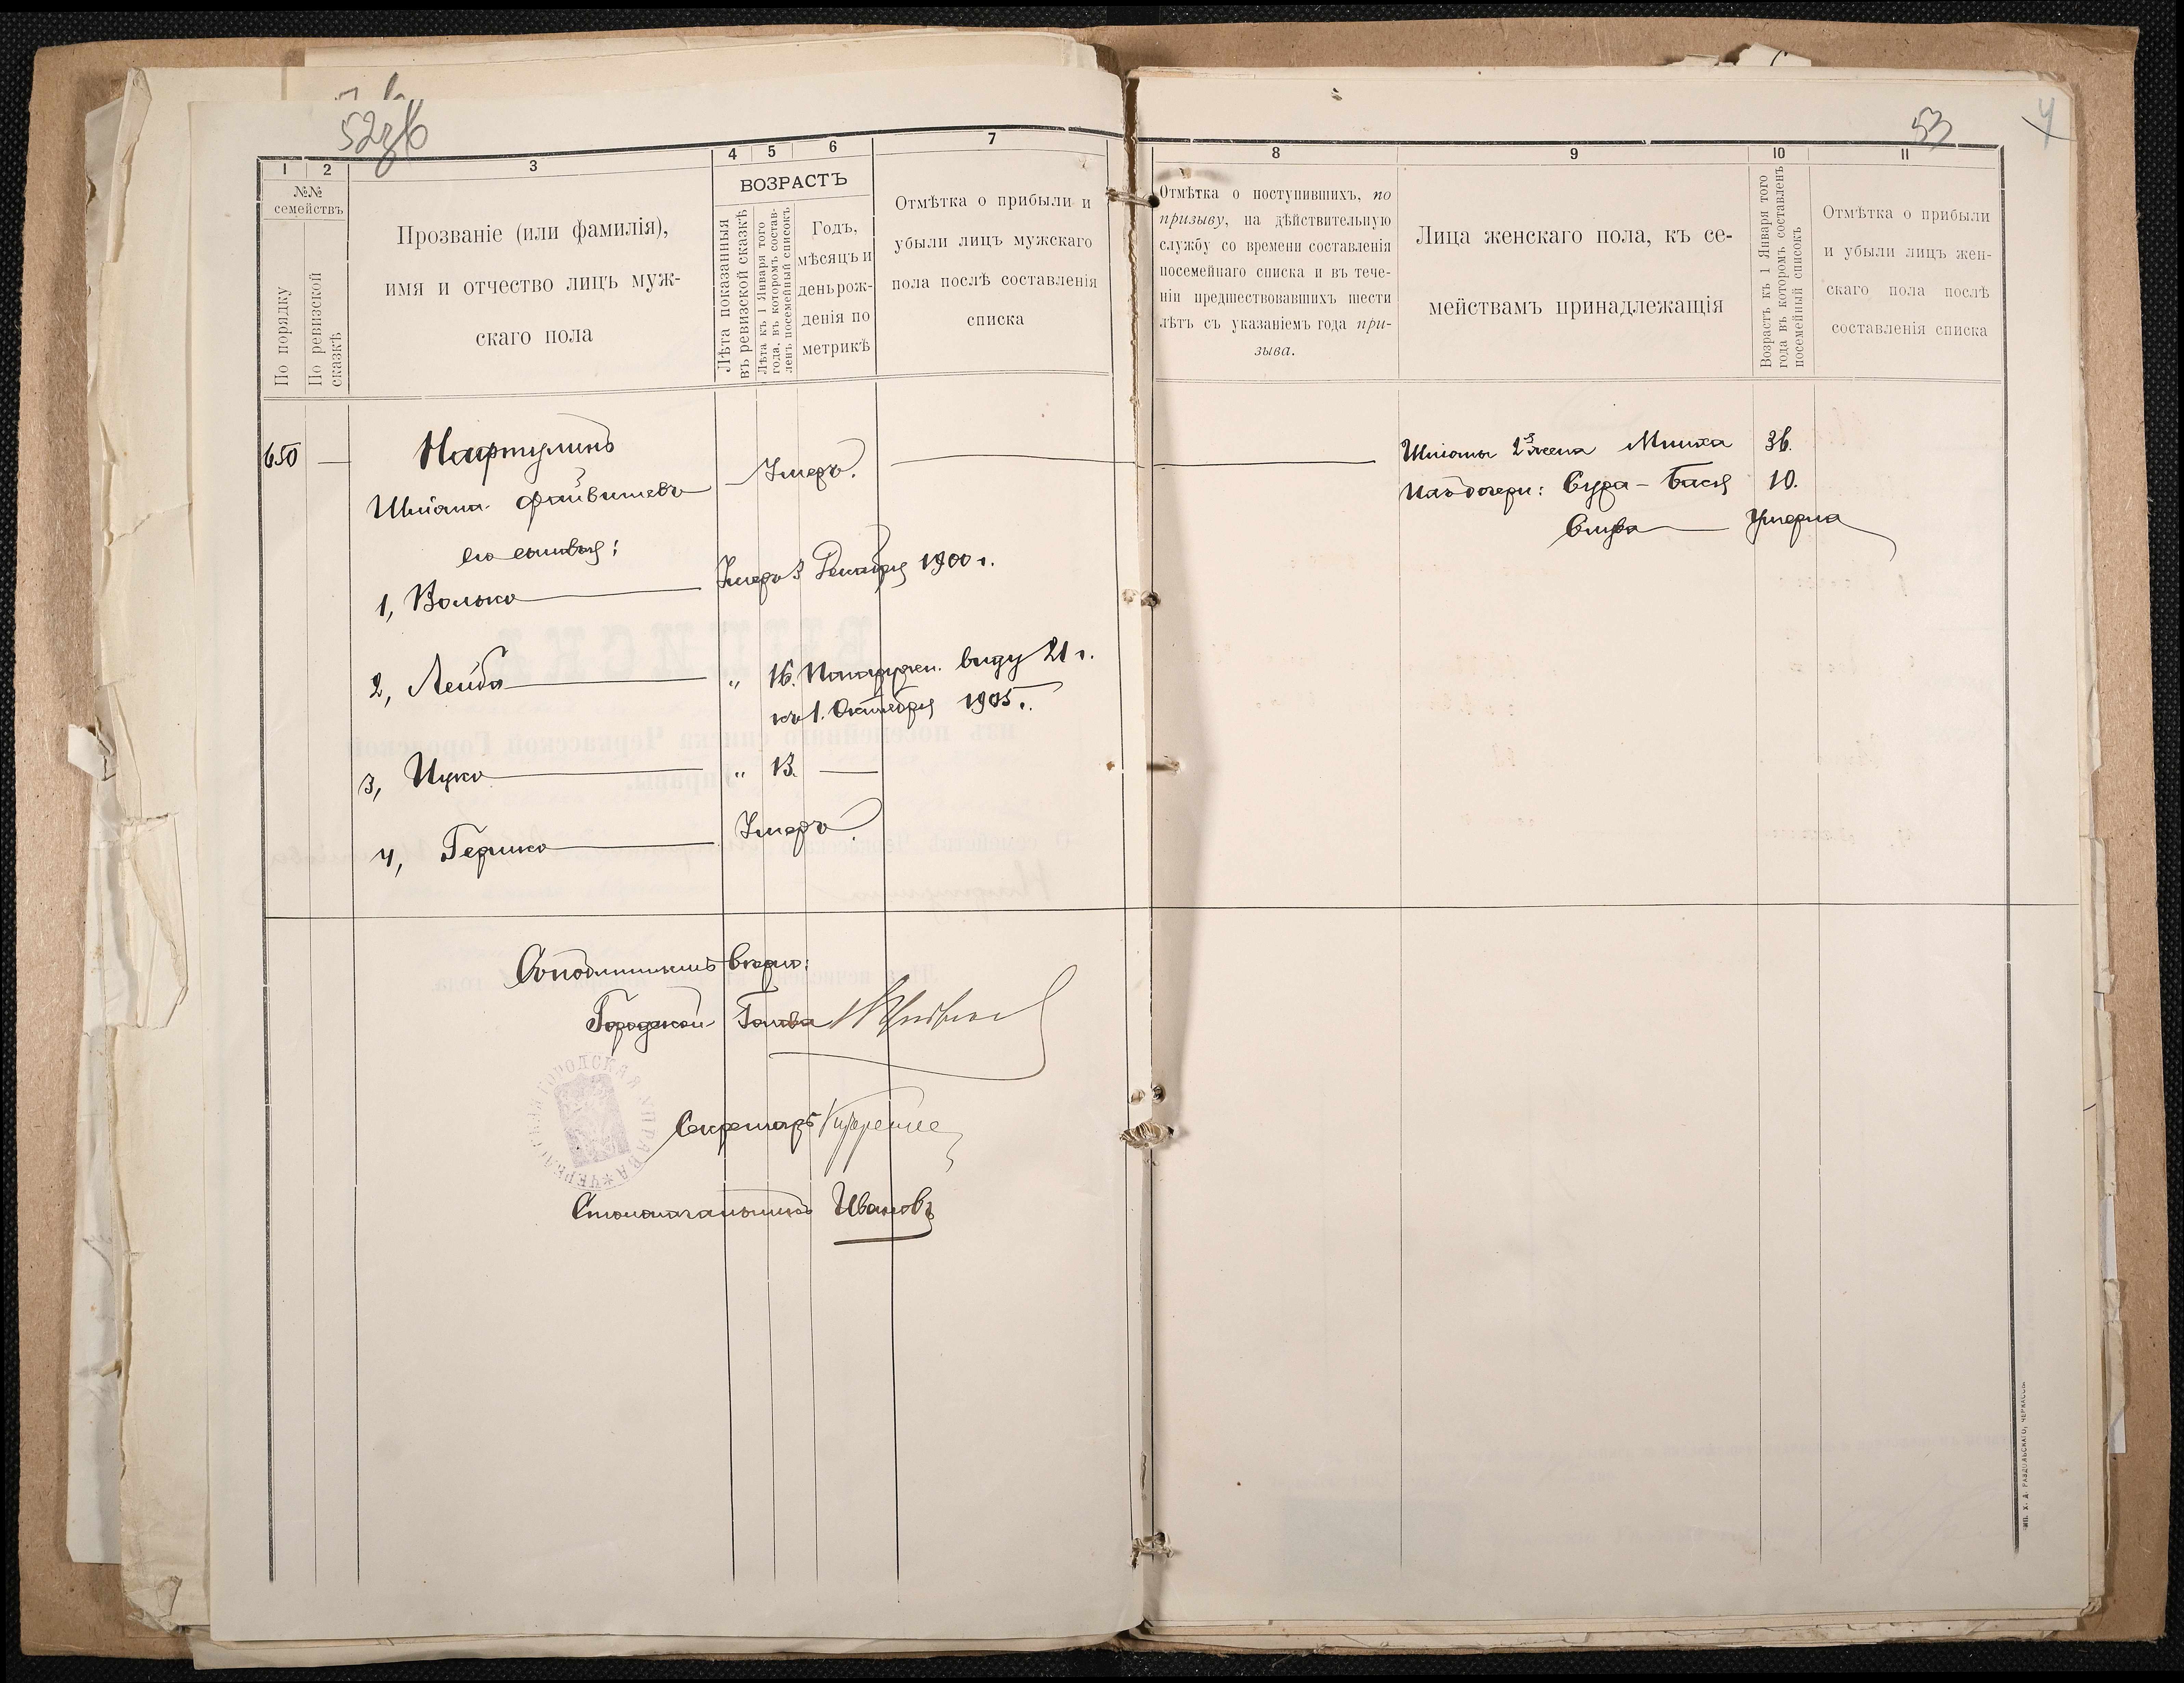 52об
53
4
1
2
3
4
5
6
7
8
9
10
11
№№
семействъ
По порядку
По ревизской
сказкѣ
Прозваніе (или фамилія),
имя и отчество лицъ муж-
скаго пола
ВОЗРАСТЪ
Лѣта показанныя
въ ревизской сказкѣ
Лѣта къ 1 Января того
года, въ которомъ состав-
ленъ посемейный списокъ
Годъ,
мѣсяцъ и
день рож-
денія по
метрикѣ
Отмѣтка о прибыли и
убыли лицъ мужскаго
пола послѣ составленія
списка
Отмѣтка о поступившихъ, по
призыву, на дѣйствительную
службу со времени составленія
посемейнаго списка и въ тече-
ніи предшествовавшихъ шести
лѣтъ съ указаніемъ года при-
зыва.
Лица женскаго пола, къ се-
мействамъ принадлежащія
Возрастъ къ 1 Января того
года въ которомъ составленъ
посемейный списокъ
Отмѣтка о прибыли
и убыли лицъ жен-
скаго пола послѣ
составленія списка
650 —
Шліома Файвишевъ Умеръ.
его сыновья:
1, Волько — Умеръ 3 Декабря 1900 г.
2, Лейба — " 16. По наружн. виду 21 г.
къ 1. Октября 1905 г.
3, Ицко — " 13. —
4, Гершко — Умеръ.
Шліомы 2я жена 36.
Ихъ дочери: Сура-Бася 10.
Слува — Умерла
Съ подлиннымъ вѣрно:
Городской Голова
Секретарь
Столоначальникъ Ивановъ
ЧЕРКАССКАЯ ГОРОДСКАЯ УПРАВА
ТИП. Х. Д. РАЗДОЛЬСКАГО, ЧЕРКАССЫ.